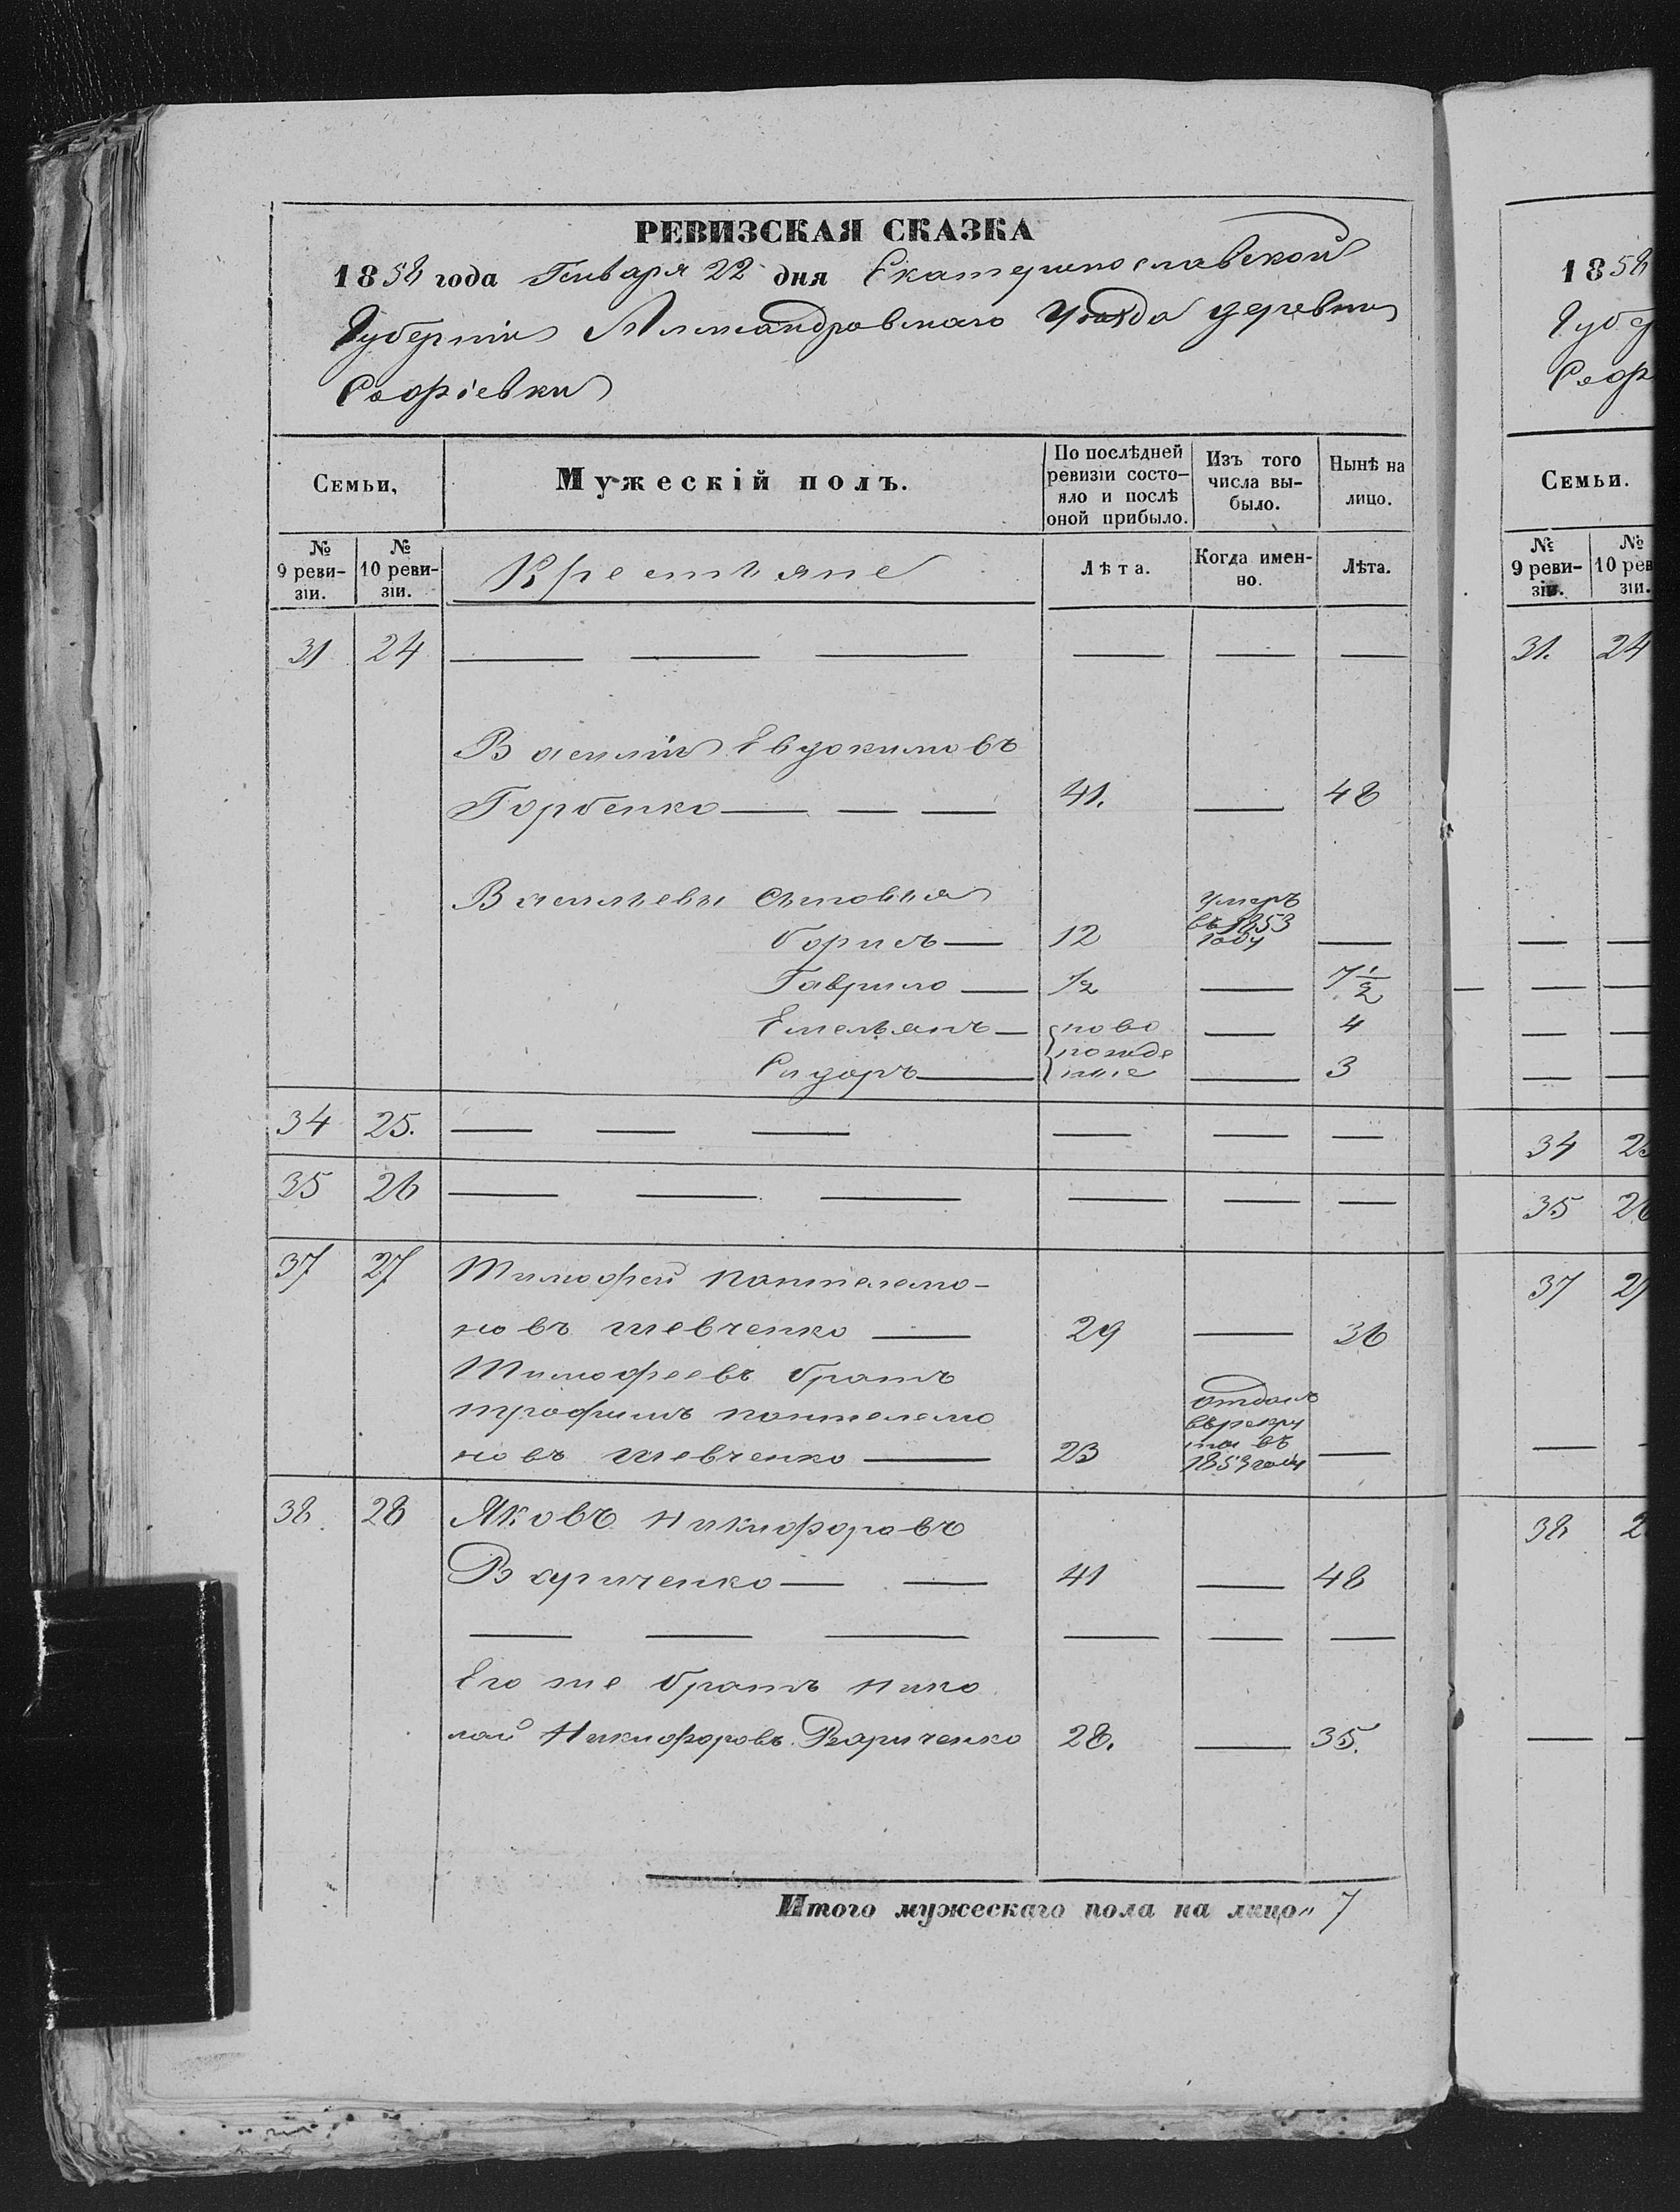 РЕВИЗСКАЯ СКАЗКА
1858 года Генваря 22 дня Екатеринославской
Губерніи Александровскаго Уѣзда деревни
Софіевки
Семьи,
Мужескій полъ.
По послѣдней ревизіи состо-
яло и послѣ
оной прибыло.
Изъ того
числа вы-
было.
Нынѣ на
лицо.
№
9 реви-
зіи.
№
10 реви-
зіи.
Крестьяне
Лѣта.
Когда имен-
но.
Лѣта.
31 24 — — — — — —
Василій Евдокимовъ
Горбенко — — — 41. — 48
Васильевы сыновья
Борисъ — 12 умеръ въ 1853 году —
Гаврило — 1/2 — 7 1/2
Емельянъ — ново — 4
рожде
Сидоръ — ные — 3
34 25. — — — — — —
35 26 — — — — — —
37 27 Тимофей Пантелемо-
новъ Шевченко — 29 — 36
Тимофеевъ братъ
Трофимъ Пантелемо
новъ Шевченко — 23 отданъ въ рекруты въ 1853 году —
38 28 Яковъ Никифоровъ
Вариченко — — 41 — 48
— — — — — —
Его же братъ Нико
лай Никифоровъ Вариченко 28. — 35.
Итого мужескаго пола на лицо „ 7
1858
Губер
Соф
Семьи.
№
9 реви-
зіи.
№
10 рев
зіи.
31. 24
34 25
35 26
37 27
38 2